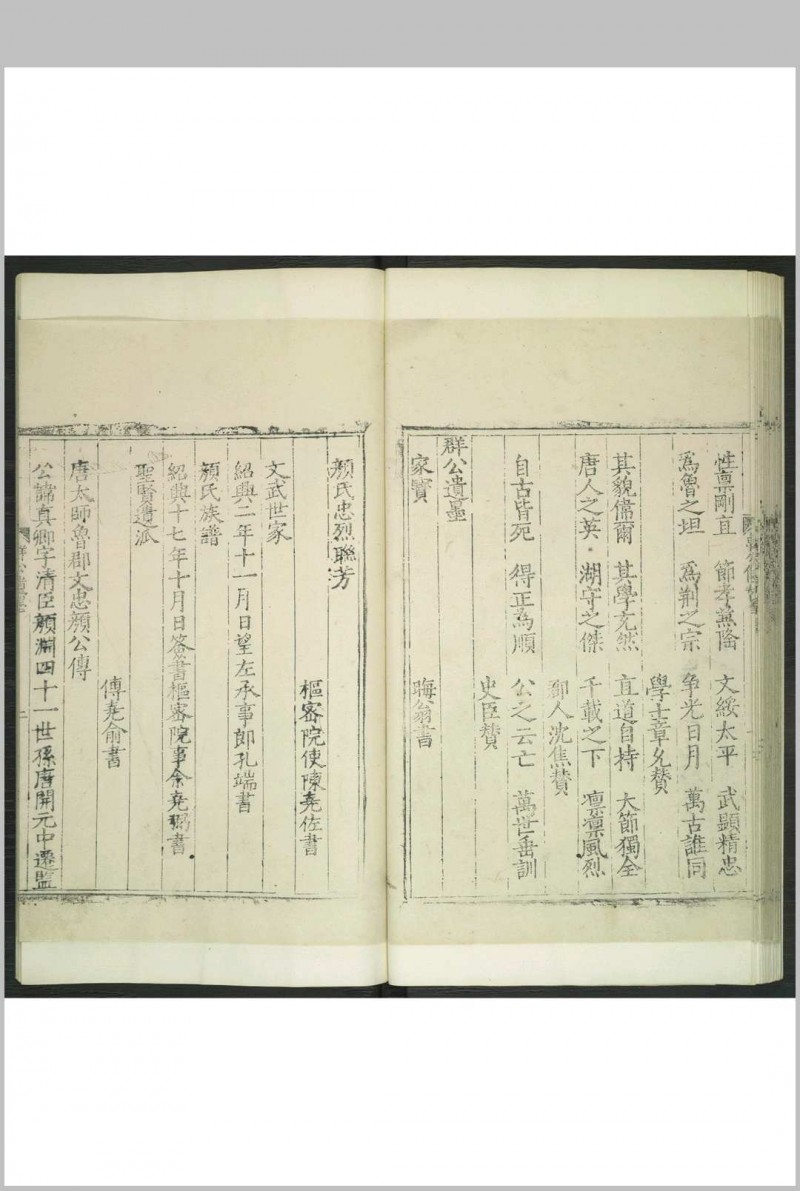 性禀剛直　節孝兼隆　文綏太平　武顯精忠
為魯之坦　為荆之宗　争光日月　萬古誰同
學士章允贊
其貌偹爾　其學充然　直道自持　大節獨全
唐人之英　湖守之傑　千載之下　凛凛風烈
御人沈焦贊
自古皆死　得正為順　公之云亡　萬世垂訓
史臣贊
群公遺墨
家寶　晦翁書
顔氏忠烈聯芳
樞宻院使陳堯佐書
文武世家
紹興二年十一月日望左承事郎孔端書
顔氏族譜
紹興十七年十月日簽書樞宻院事余堯弼書
聖賢遺派
傅堯俞書
唐太師魯郡文忠顔公傳
公諱真卿字清臣顔淵四十一世孫唐開元中遷監